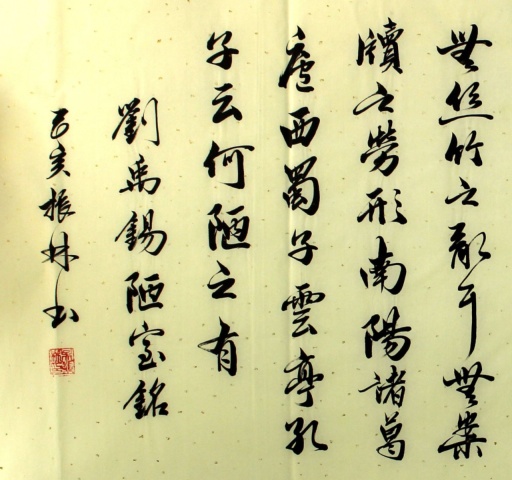 無絲竹之亂耳無案
牘之勞形南陽諸葛
廬西蜀子雲亭孔
子云何陋之有
劉禹錫陋室銘
己亥振林书